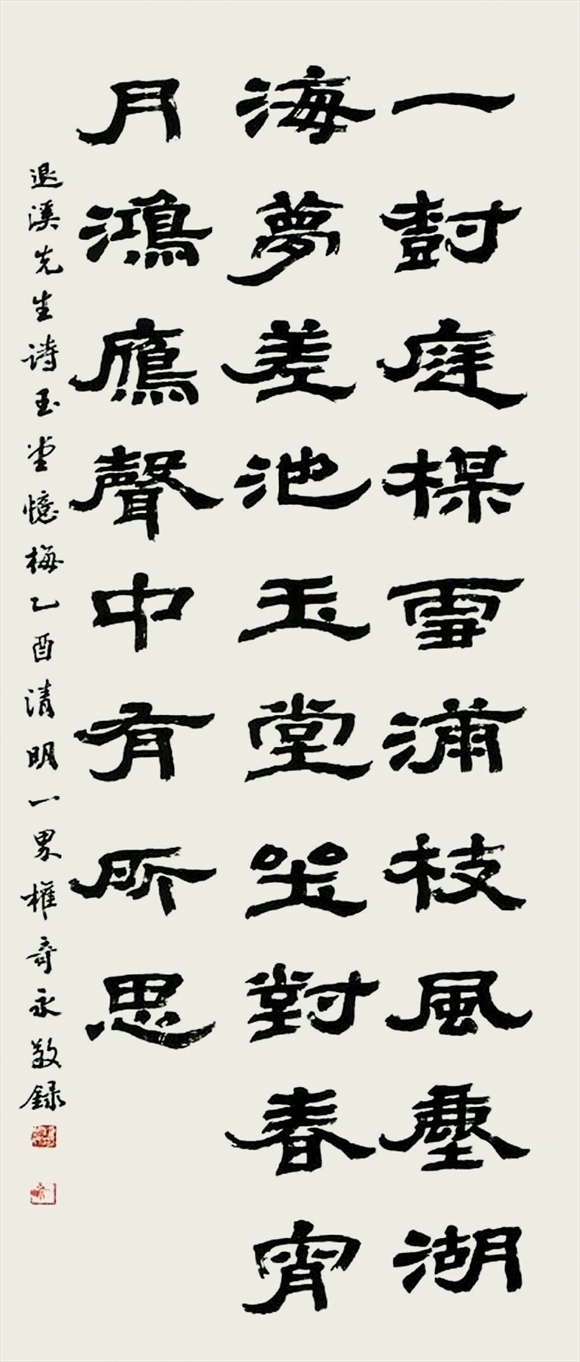 一尌庭楳雪滿枝風塵湖
海夢差池玉堂坐對春宵
月鴻鴈聲中有所思
退溪先生詩玉堂憶梅乙酉清明一權奇永敬録